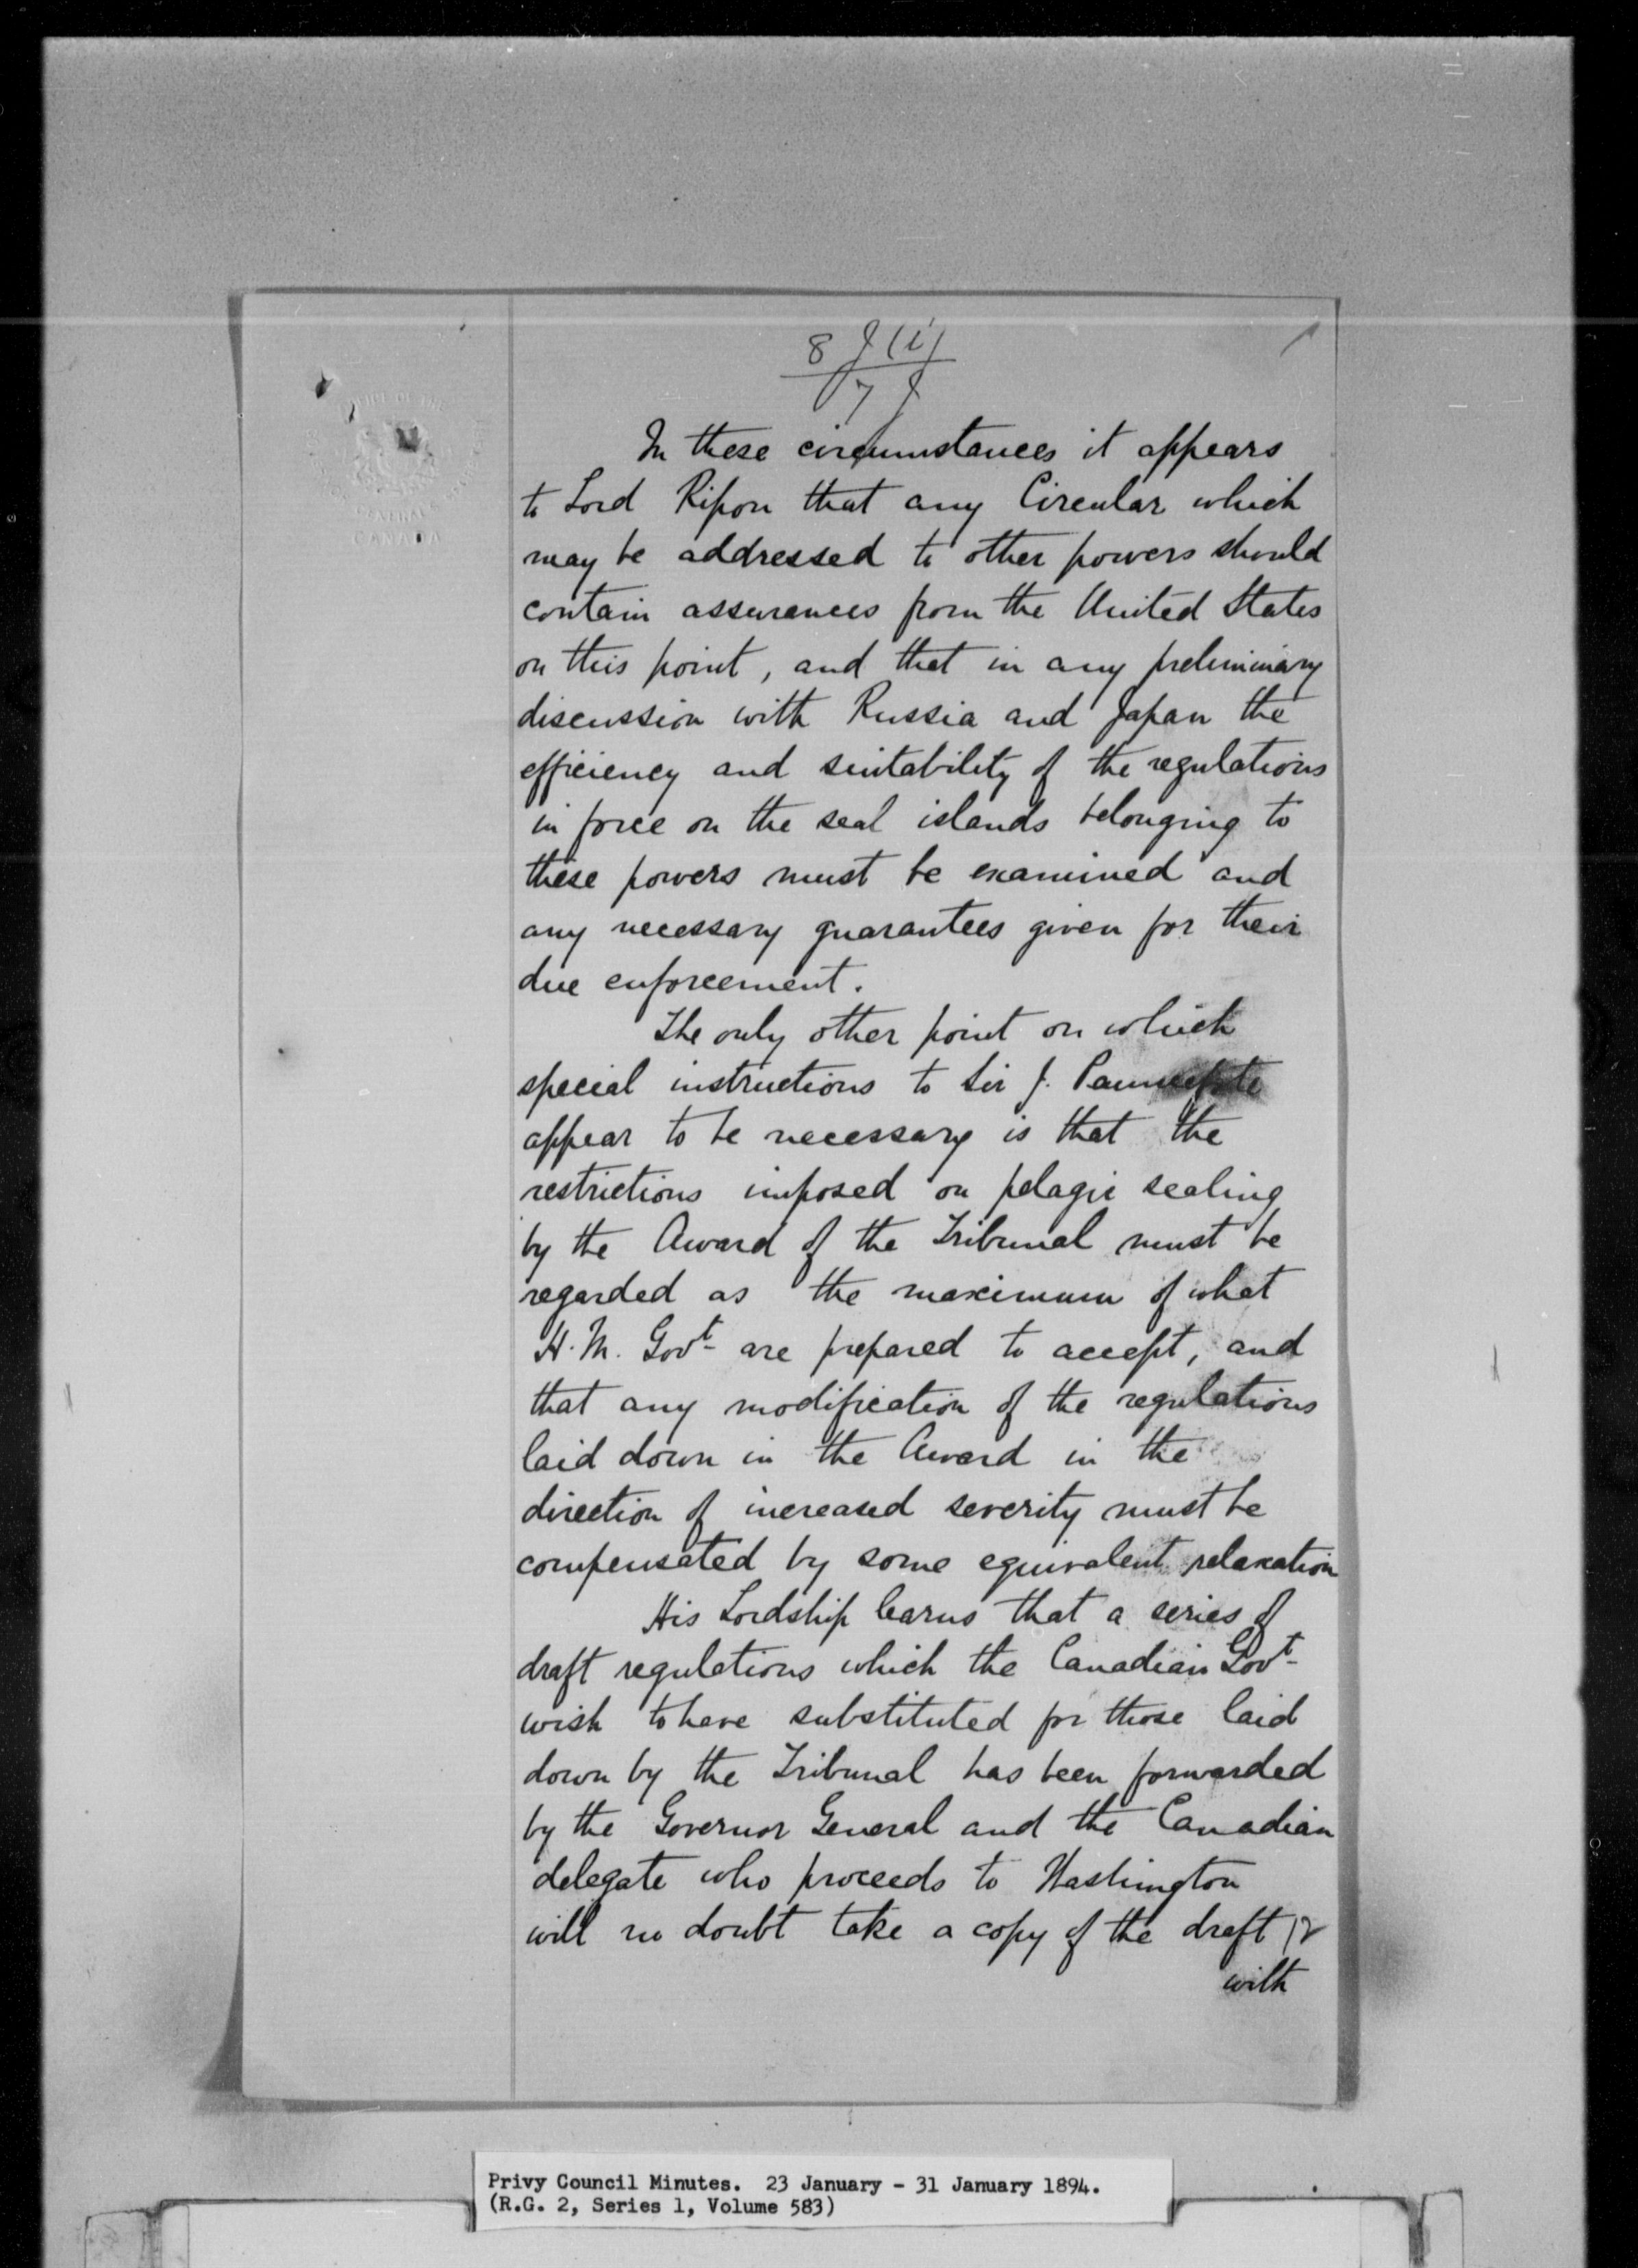 8 J (i)
7 J
In these circumstances it appears
to Lord Ripon that any Circular which
may be addressed to other powers should
contain assurances from the United States
on this point, and that in any preliminary
discussion with Russia and Japan the
efficiency and suitability of the regulations
in force on the seal islands belonging to
these powers must be examined and
any necessary guarantees given for their
due enforcement.
The only other point on which
special instructions to Sir J. Pauncefote
appear to be necessary is that the
restrictions imposed on pelagic sealing
by the Award of the Tribunal must be
regarded as the maximum of what
H. M. Govt are prepared to accept, and
that any modification of the regulations
laid down in the Award in the
direction of increased severity must be
compensated by some equivalent relaxation
His Lordship learns that a series of
draft regulations which the Canadian Govt
wish to have substituted for those laid
down by the Tribunal has been forwarded
by the Governor General and the Canadian
delegate who proceeds to Washington
will no doubt take a copy of the draft
with
CANADA
Privy Council Minutes. 23 January - 31 January 1894.
(R.G. 2, Series 1, Volume 583)